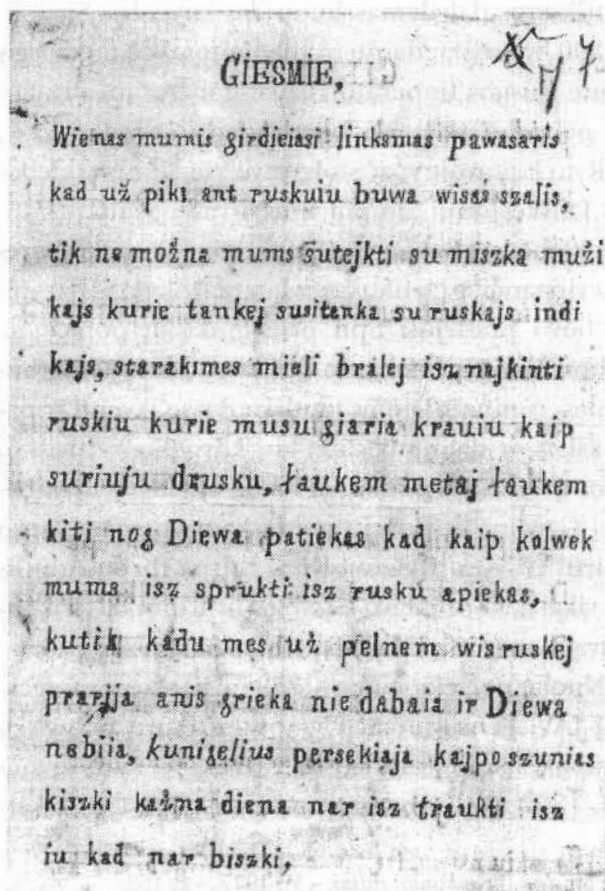 GIESMIE,
№ 7
Wienas mumis girdieiasi linksmas pawasaris
kad už piki ant ruskuiu buwa wisas szalis,
tik ne možna mums sutejkti su miszka muži
kajs kurie tankej susitanka su ruskajs indi
kajs, starakimes mieli bralej isz najkinti
ruskiu kurie musu giaria krauiu kaip
suriuju drusku, łaukem metaj łaukem
kiti nog Diewa patiekas kad kaip kolwek
mums isz sprukti isz rusku apiekas,
kutik kadu mes už pelnem wis ruskej
prarija anis grieka nie dabaia ir Diewa
nebiia, kunigelius persekiaja kajpo szunias
kiszki kažna diena nar isz traukti isz
iu kad nar biszki,